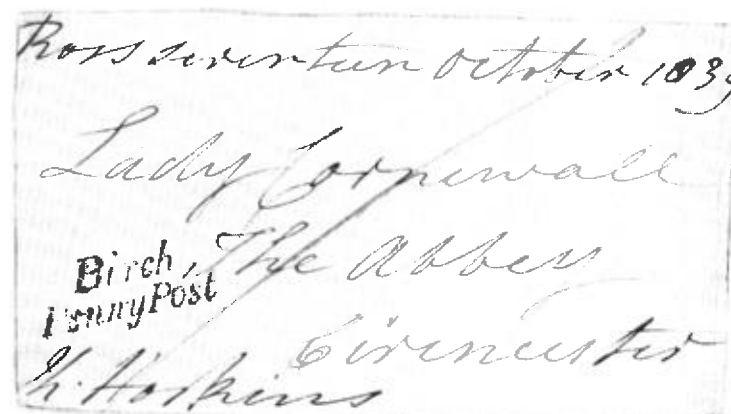 Ross seventeen October 1839
Lady Cornewall
The Abbey
Birch,
Penny Post
Cirencester
K. Hoskins